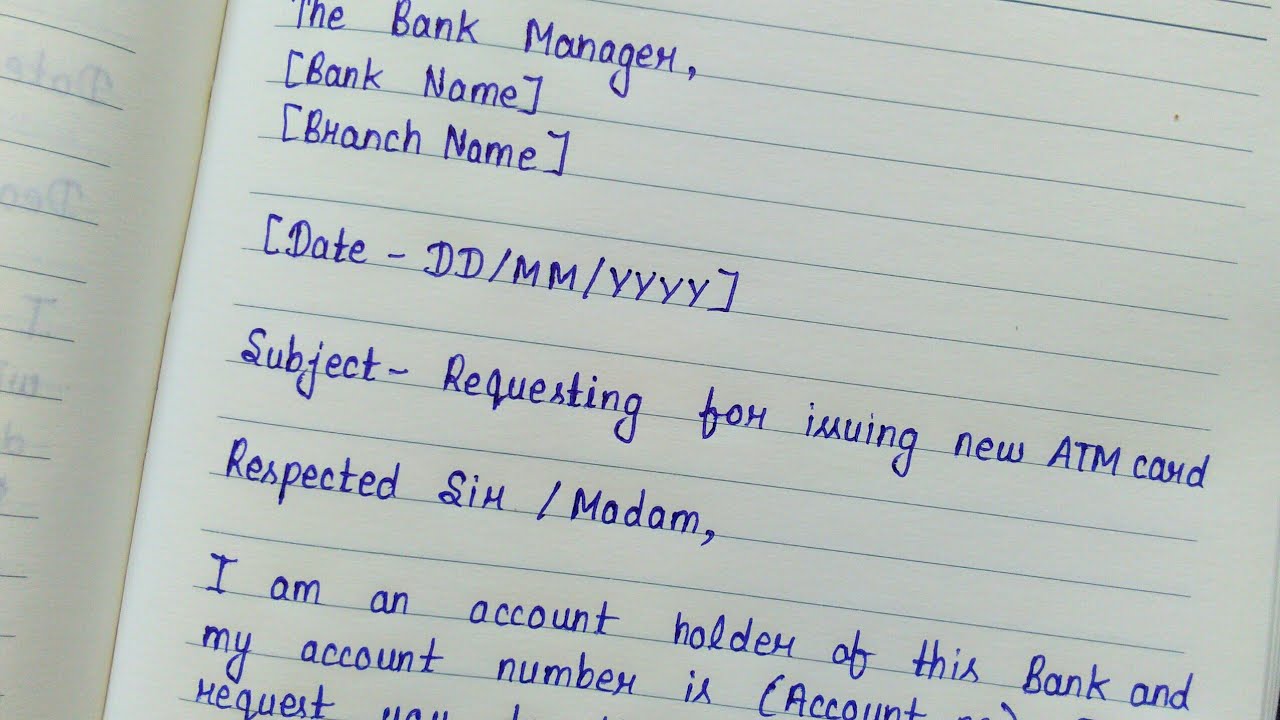 The Bank Manager,
[Bank Name]
[Branch Name]
[Date - DD/MM/YYYY]
Subject- Requesting for issuing new ATM card
Respected Sir / Madam,
I am an account holder of this Bank and
my account number is (Account no)
request you